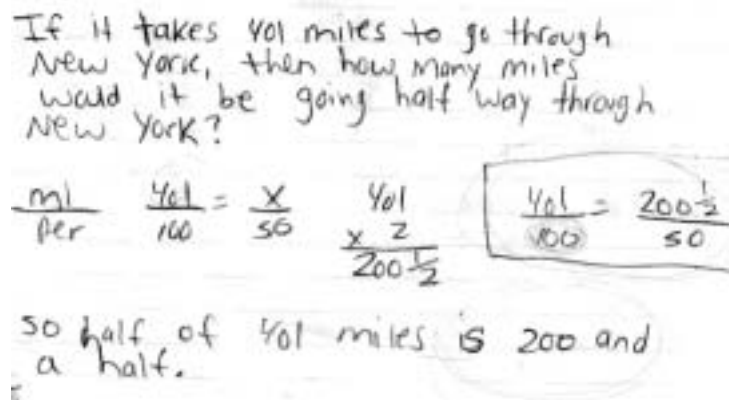 If it takes 401 miles to go through
New York, then how many miles
would it be going half way through
New York?
mi/per 401/100 = x/50 401 x 2 200 1/2 401/100 = 200 1/2/50
so half of 401 miles is 200 and
a half.